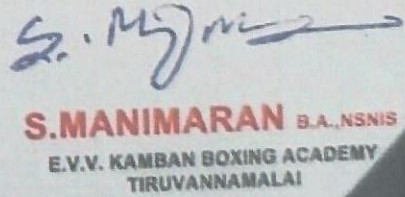 S.MANIMARAN B.A.,NSNIS
E.V.V. KAMBAN BOXING ACADEMY
TIRUVANNAMALAI